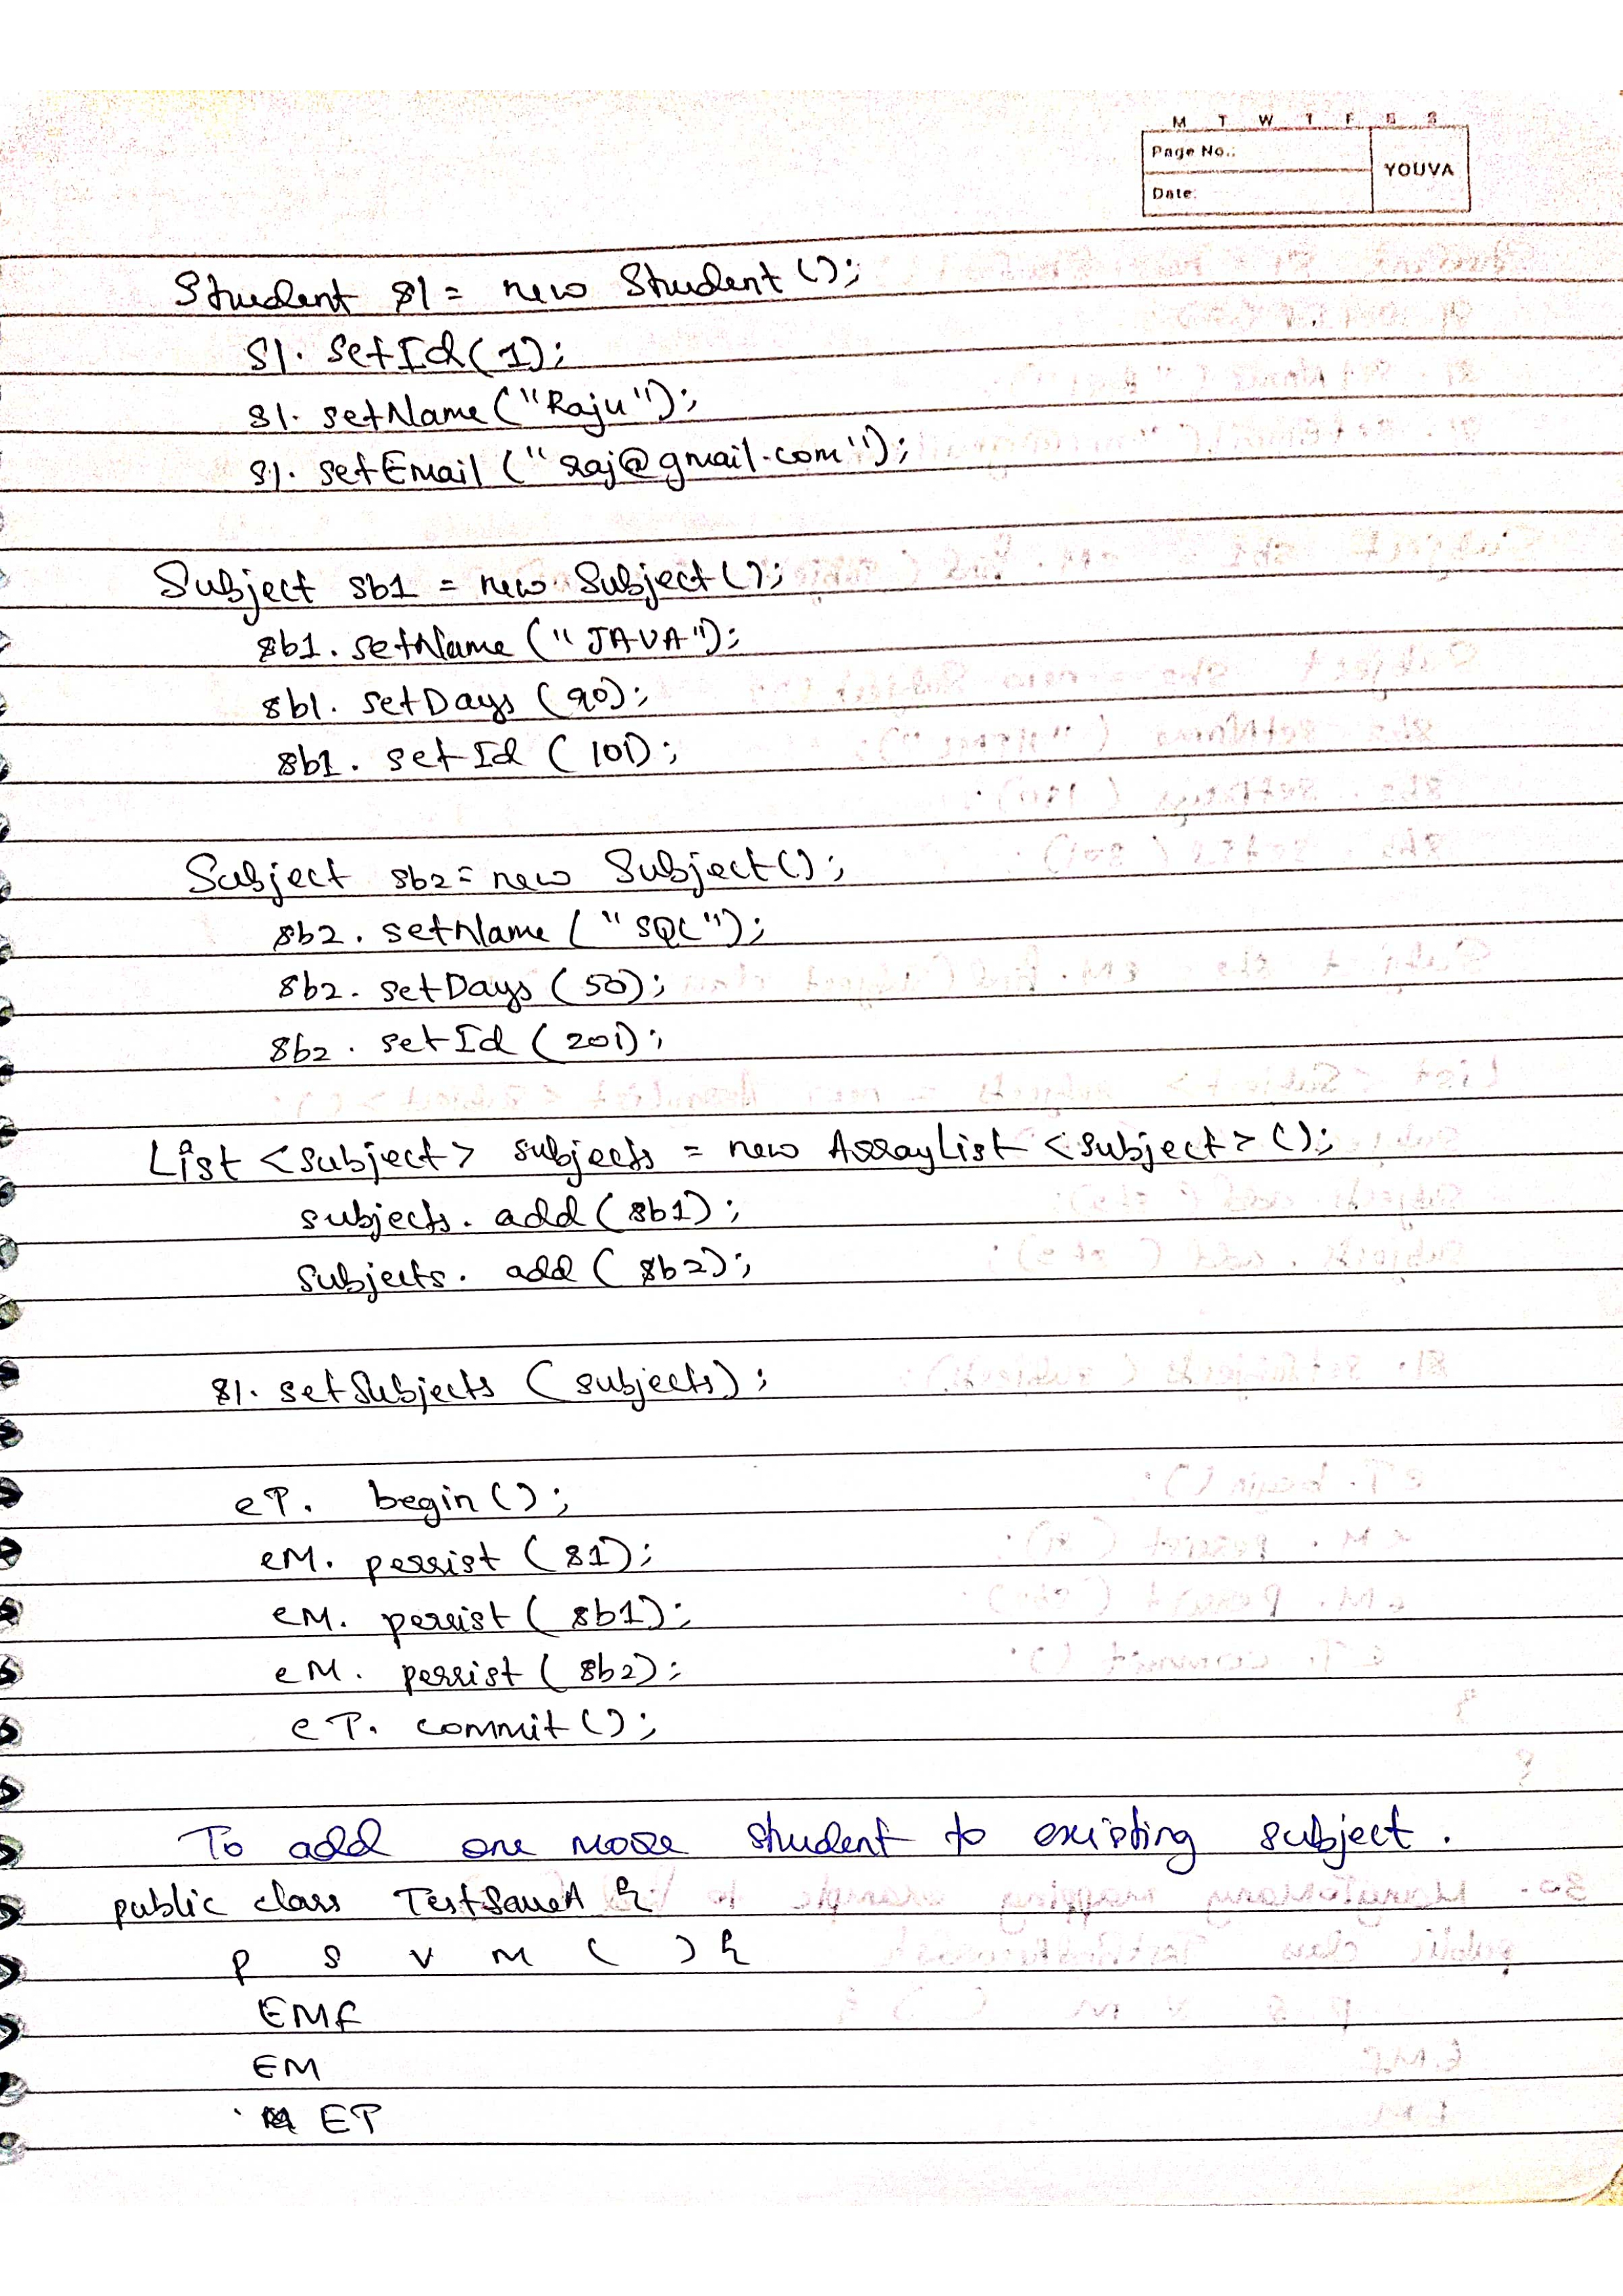 M T W T F S S
Page No.:
YOUVA
Date:
Student s1 = new Student ();
s1. setId(1);
s1. setName ("Raju");
s1. setEmail ("raj@gmail.com");
Subject sb1 = new Subject ();
sb1. setName ("JAVA");
sb1. setDays (90);
sb1. setId (101);
Subject sb2 = new Subject();
sb2. setName ("SQL");
sb2. setDays (50);
sb2. setId (201);
List <subject> subjects = new ArrayList <subject> ();
subjects. add (sb1);
subjects. add (sb2);
s1. setSubjects (subjects);
eT. begin ();
eM. persist (s1);
eM. persist (sb1);
eM. persist (sb2);
eT. commit ();
To add one more student to existing subject.
public class TestSaveA {
p s v m ( ) {
EMF
EM
ET